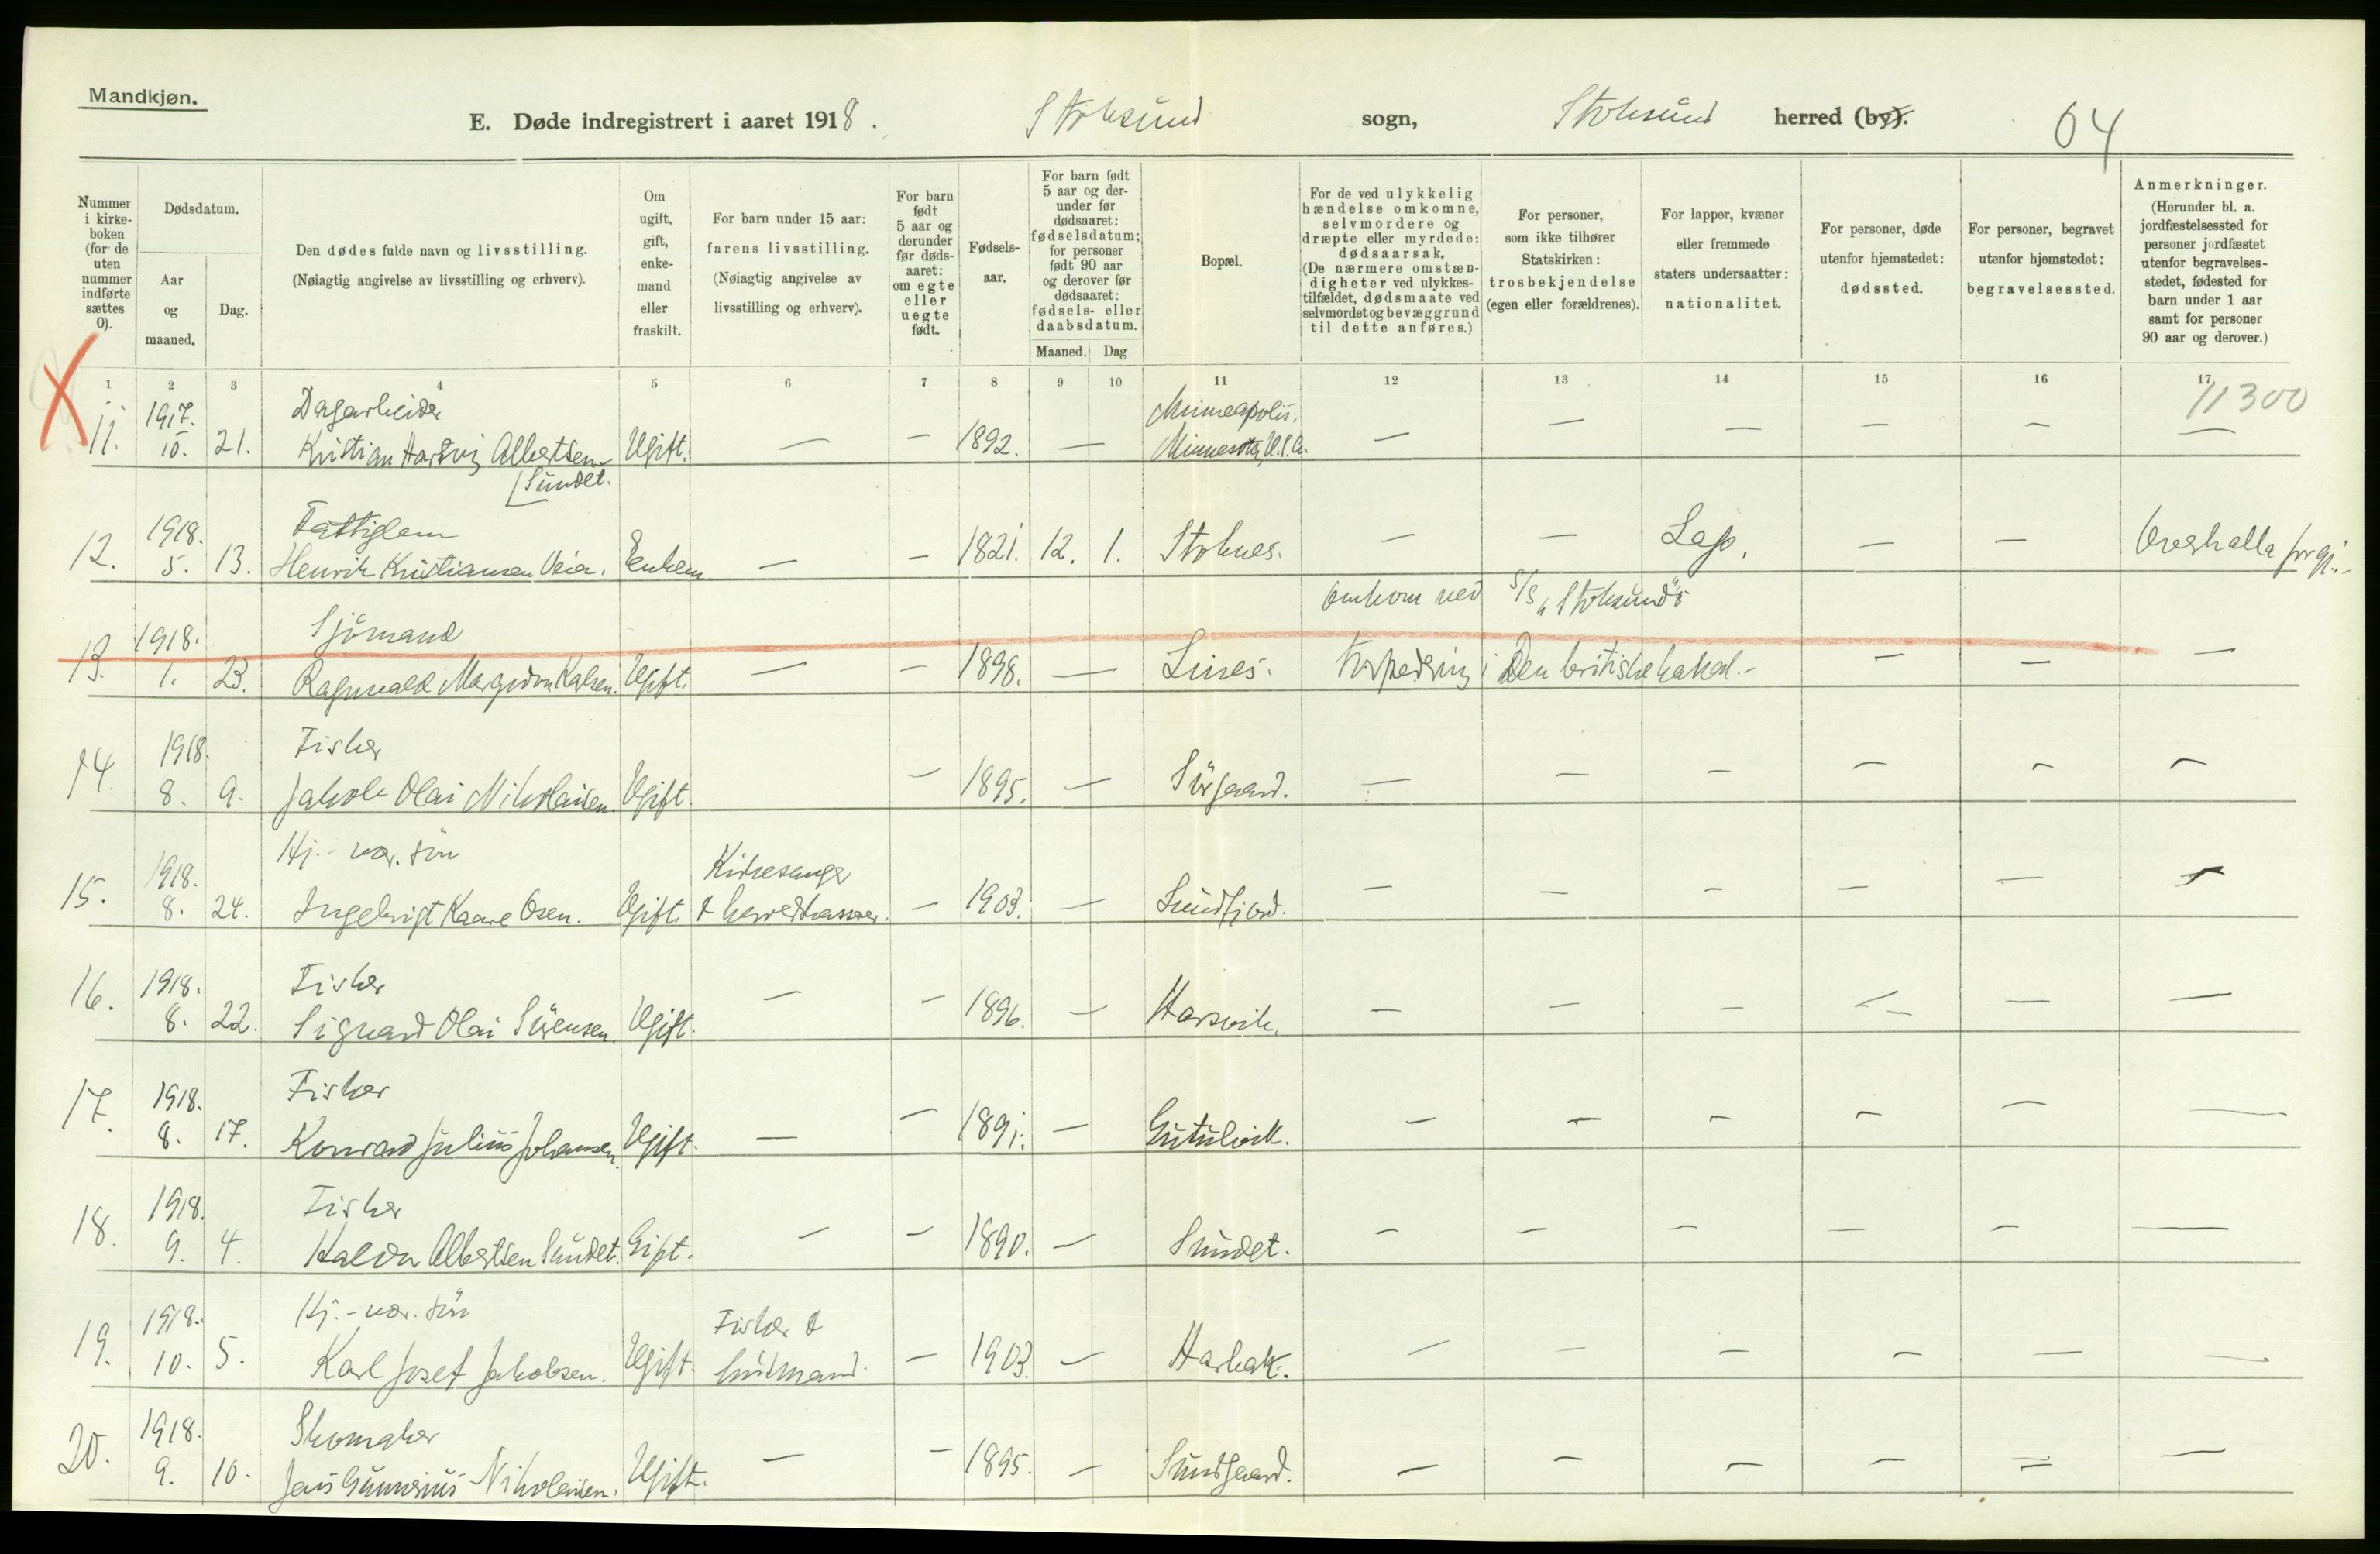 Mandkjøn.
E. Døde indregistrert i aaret 1918. Stoksund sogn, Stoksund herred (by). 64
Nummer i kirke-boken (for de uten nummer indførte sættes 0).
Dødsdatum.
Aar og maaned.
Dag.
Den dødes fulde navn og livsstilling.
(Nøiagtig angivelse av livsstilling og erhverv).
Om ugift, gift, enke-mand eller fraskilt.
For barn under 15 aar: farens livsstilling.
(Nøiagtig angivelse av livsstilling og erhverv).
For barn født 5 aar og derunder før døds-aaret: om egte eller uegte født.
Fødsels-aar.
For barn født 5 aar og der-under før dødsaaret: fødselsdatum; for personer født 90 aar og derover før dødsaaret: fødsels- eller daabsdatum.
Maaned. Dag
Bopæl.
For de ved ulykkelig hændelse omkomne, selvmordere og dræpte eller myrdede: dødsaarsak.
(De nærmere omstæn-digheter ved ulykkes-tilfældet, dødsmaate ved selvmordet og bevæggrund til dette anføres.)
For personer, som ikke tilhører Statskirken: trosbekjendelse (egen eller forældrenes).
For lapper, kvæner eller fremmede staters undersaatter: nationalitet.
For personer, døde utenfor hjemstedet: dødssted.
For personer, begravet utenfor hjemstedet: begravelsessted.
Anmerkninger.
(Herunder bl. a. jordfæstelsessted for personer jordfæstet utenfor begravelses-stedet, fødested for barn under 1 aar samt for personer 90 aar og derover.)
1 2 3 4 5 6 7 8 9 10 11 12 13 14 15 16 17
11300
1917. Dagarbeider Minneapolis.
11. 10. 21. Kristian Hartvig Albertsen Ugift. — — 1892. — Minnesota, U.S.A. — — — — — —
Sundet.
1918. Fattiglem
12. 5. 13. Henrik Kristiansen Veia. Enkem. — — 1821. 12. 1. Stoknes. — — Lap. — — Overhalla prgj.
omkom ved S/S „Stoksund"s
1918. Sjömand
13. 1. 23. Ragnvald Margidon Karlsen. Ugift. — — 1898. — Lines. torpedering i Den britiske kanal. — — —
1918. Fisker
14. 8. 9. Jakob Olai Nikolaisen. Ugift. — 1895. — Sörgaard. — — — — — —
Hj.- vær. sön
1918. Kirkesanger
15. 8. 24. Ingebrigt Kaare Osen. Ugift. & herredskasserer. — 1903. — Sundfjord. — — — — — —
1918. Fisker
16. 8. 22. Sigvard Olai Sörensen. Ugift. — — 1896. — Harsvik. — — — — — —
1918. Fisker
17. 8. 17. Konrad Julius Johansen. Ugift. — — 1891. — Gutulvik. — — — — — —
1918. Fisker
18. 9. 4. Haldor Albertsen Sundet. Gift. — — 1890. — Sundet. — — — — — —
1918. Hj.- vær. sön Fisker &
19. 10. 5. Karl Josef Jakobsen. Ugift. husmand. — 1903. — Harbak. — — — — — —
1918. Skomaker
20. 9. 10. Jens Gunnerius Nikolaisen. Ugift. — — 1895. — Sundgaard. — — — — — —